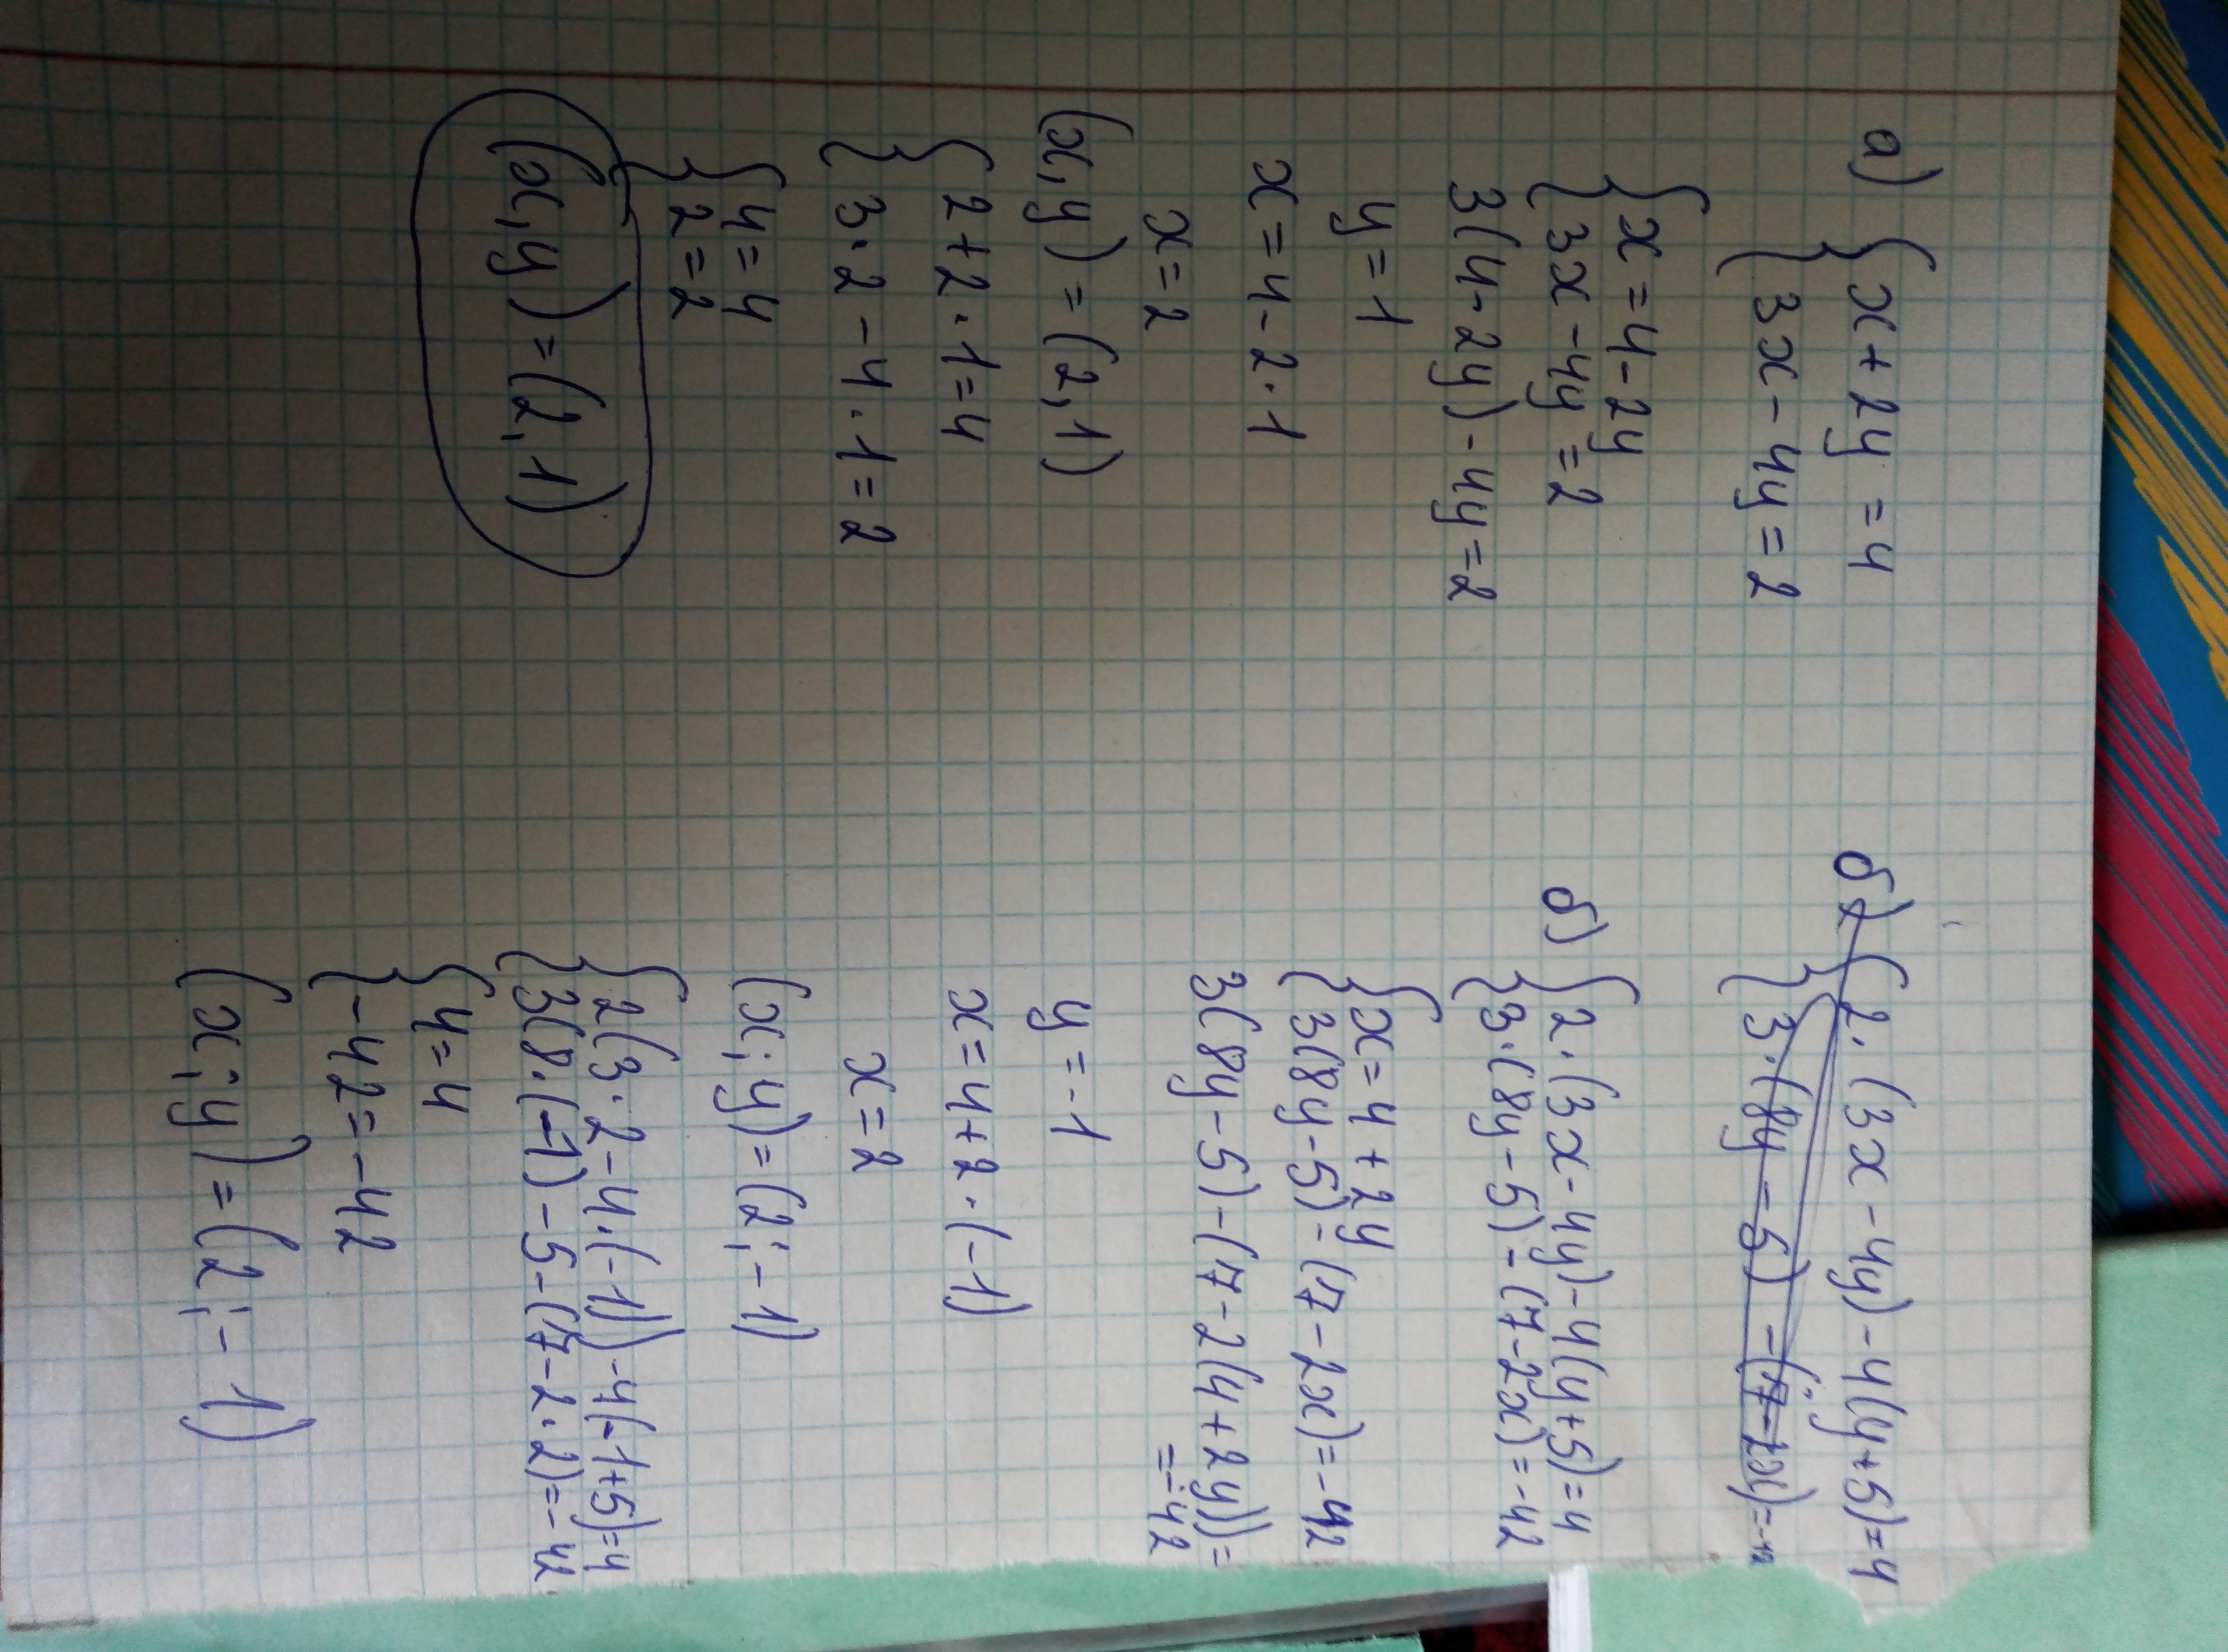 а) { x + 2y = 4
{ 3x - 4y = 2
{ x = 4 - 2y
{ 3x - 4y = 2
3(4 - 2y) - 4y = 2
y = 1
x = 4 - 2 · 1
x = 2
(x, y) = (2, 1)
{ 2 + 2 · 1 = 4
{ 3 · 2 - 4 · 1 = 2
{ 4 = 4
{ 2 = 2
(x, y) = (2, 1)
б) { 2 · (3x - 4y) - 4(y + 5) = 4
{ 3 · (8y - 5) - (7 - 2x) = -42
б) { 2 · (3x - 4y) - 4(y + 5) = 4
{ 3 · (8y - 5) - (7 - 2x) = -42
{ x = 4 + 2y
{ 3(8y - 5) - (7 - 2x) = -42
3(8y - 5) - (7 - 2(4 + 2y)) =
= -42
y = -1
x = 4 + 2 · (-1)
x = 2
(x; y) = (2; -1)
{ 2(3 · 2 - 4 · (-1)) - 4(-1 + 5) = 4
{ 3(8 · (-1) - 5 - (7 - 2 · 2) = -42
{ 4 = 4
{ -42 = -42
(x; y) = (2; -1)